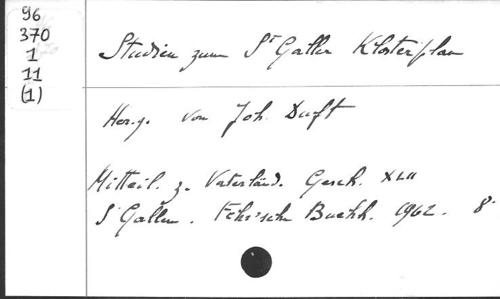 96
370
1
11
(1)
Studien zum St Galler Klosterplan
Herg. von Joh. Duft
Mitteil. z. Vaterländ. Gesch. XLII
St Gallen. Fehr'sche Buchh. 1962. 8°